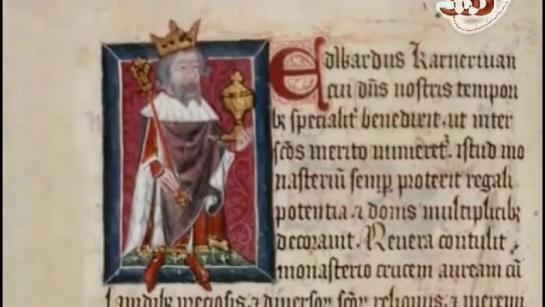 Edwardus Karneruan
cui dns nostris tempori
bz specialit benedixit, ut inter
scos merito numeret. istud mo
nasterium semp proterit regali
potentia & donis multiplicibz
decorauit. Reuera contulit
monasterio crucem auream cu